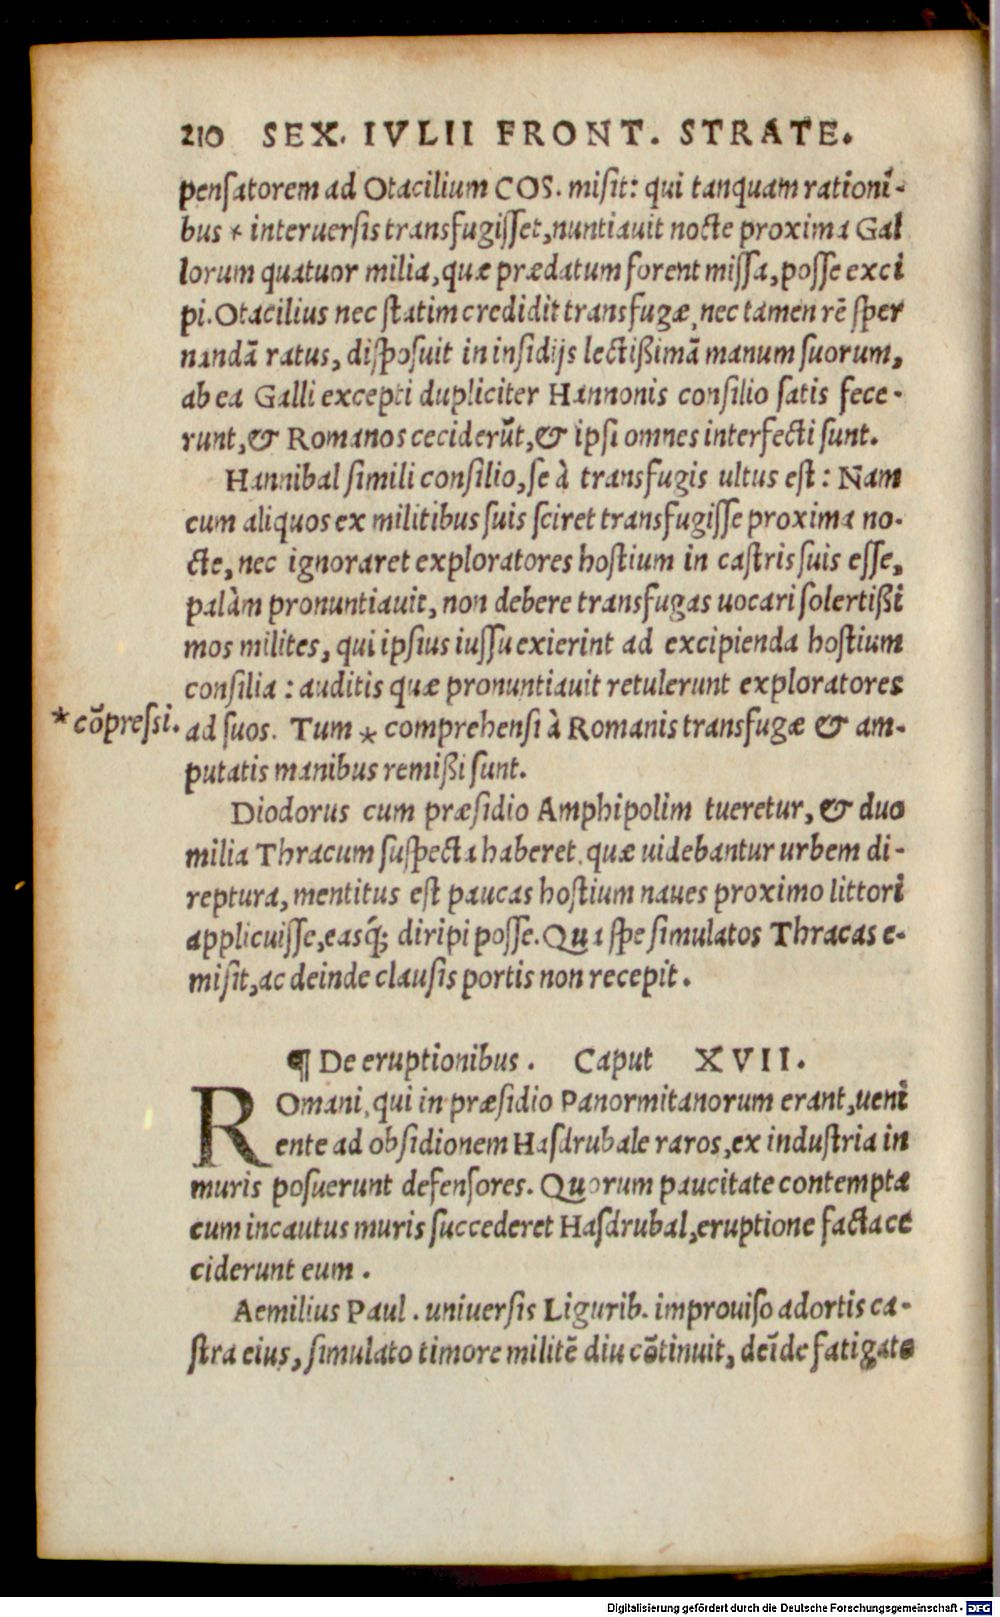 210 SEX. IVLII FRONT. STRATE.
pensatorem ad Otacilium COS. misit: qui tanquam rationi-
bus * interuersis transfugisset, nuntiauit nocte proxima Gal
lorum quatuor milia, quæ prædatum forent missa, posse exci
pi. Otacilius nec statim credidit transfugæ, nec tamen rē sper
nandā ratus, disposuit in insidijs lectißimā manum suorum,
ab ea Galli excepti dupliciter Hannonis consilio satis fece-
runt, & Romanos ceciderūt, & ipsi omnes interfecti sunt.
Hannibal simili consilio, se à transfugis ultus est: Nam
cum aliquos ex militibus suis sciret transfugisse proxima no-
cte, nec ignoraret exploratores hostium in castris suis esse,
palàm pronuntiauit, non debere transfugas uocari solertißi
mos milites, qui ipsius iussu exierint ad excipienda hostium
consilia: auditis quæ pronuntiauit retulerunt exploratores
*cōpressi.
ad suos. Tum * comprehensi à Romanis transfugæ & am-
putatis manibus remißi sunt.
Diodorus cum præsidio Amphipolim tueretur, & duo
milia Thracum suspecta haberet, quæ uidebantur urbem di-
reptura, mentitus est paucas hostium naues proximo littori
applicuisse, easq́; diripi posse. Qua spe simulatos Thracas e-
misit, ac deinde clausis portis non recepit.
¶ De eruptionibus. Caput XVII.
ROmani, qui in præsidio Panormitanorum erant, ueni
ente ad obsidionem Hasdrubale raros, ex industria in
muris posuerunt defensores. Quorum paucitate contempta
cum incautus muris succederet Hasdrubal, eruptione facta ce
ciderunt eum.
Aemilius Paul. uniuersis Ligurib. improuiso adortis ca-
stra eius, simulato timore militē diu cōtinuit, deīde fatigato
Digitalisierung gefördert durch die Deutsche Forschungsgemeinschaft - DFG